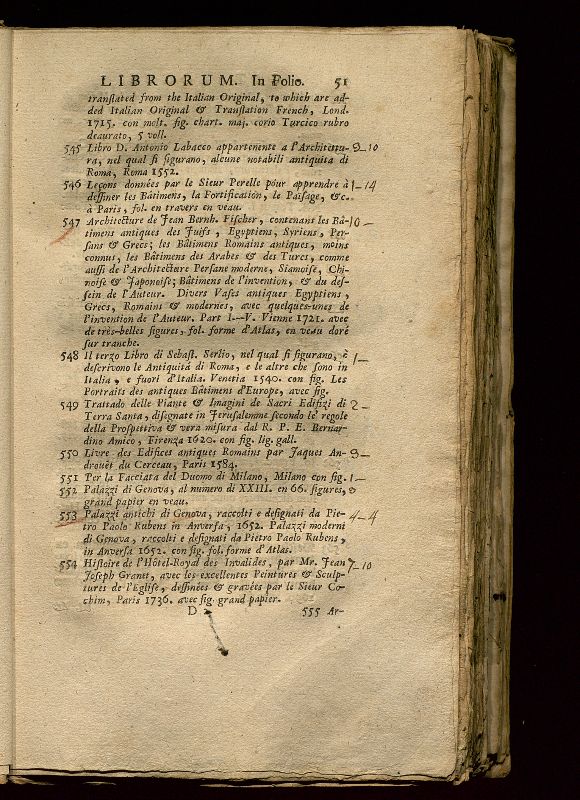 LIBRORUM. In Folio. 51
translated from the Italian Original, to which are ad-
ded Italian Original & Translation French, Lond.
1715. con molt. fig. chart. maj. corio Turcico rubro
deaurato, 5 voll.
545 Libro D. Antonio Labacco appartenente a l'Architettu- 9-10
ra, nel qual si figurano, alcune notabili antiquita di
Roma, Roma 1552.
546 Leçons données par le Sieur Perelle pour apprendre à 1-14
dessiner les Bâtimens, la Fortification, le Païsage, &c.
à Paris, fol. en travers en veau.
547 Architecture de Jean Bernh. Fischer, contenant les Bâ- 10-
timens antiques des Juifs, Egyptiens, Syriens, Per-
sans & Grecs; les Bâtimens Romains antiques, moins
connus, les Bâtimens des Arabes & des Turcs, comme
aussi de l'Architecture Persane moderne, Siamoise, Chi-
noise & Japonoise; Bâtimens de l'invention, & du des-
sein de l'Auteur. Divers Vases antiques Egyptiens,
Grecs, Romains & modernes, avec quelques-unes de
l'invention de l'Auteur. Part I--V. Vienne 1721. avec
de très-belles figures, fol. forme d'Atlas, en veau doré
sur tranche.
548 Il terzo Libro di Sebast. Serlio, nel qual si figurano, è 1-
descrivono le Antiquitá di Roma, e le altre che sono in
Italia, e fuori d'Italia. Venetia 1540. con fig. Les
Portraits des antiques Bâtimens d'Europe, avec fig.
549 Trattado delle Piante & Imagini de Sacri Edifizi di 2-
Terra Santa, disegnate in Jerusalemme secondo le regole
della Prospettiva & vera misura dal R. P. E. Bernar-
dino Amico, Firenza 1620. con fig. lig. gall.
550 Livre des Edifices antiques Romains par Jaques An- 3-
drouët du Cerceau, Paris 1584.
551 Per la Facciata del Duomo di Milano, Milano con fig. 1-
552 Palazzi di Genova, al numero di XXIII. en 66. figures,
grand papier en veau.
553 Palazzi antichi di Genova, raccolti e designati da Pie- 4-4
tro Paolo Rubens in Anversa, 1652. Palazzi moderni
di Genova, raccolti e designati da Pietro Paolo Rubens,
in Anversa 1652. con fig. fol. forme d'Atlas.
554 Histoire de l'Hôtel-Royal des Invalides, par Mr. Jean 7-10
Joseph Granet, avec les excellentes Peintures & Sculp-
tures de l'Eglise, dessinées & gravées par le Sieur Co-
chim, Paris 1736. avec fig. grand papier.
D 2 555 Ar-